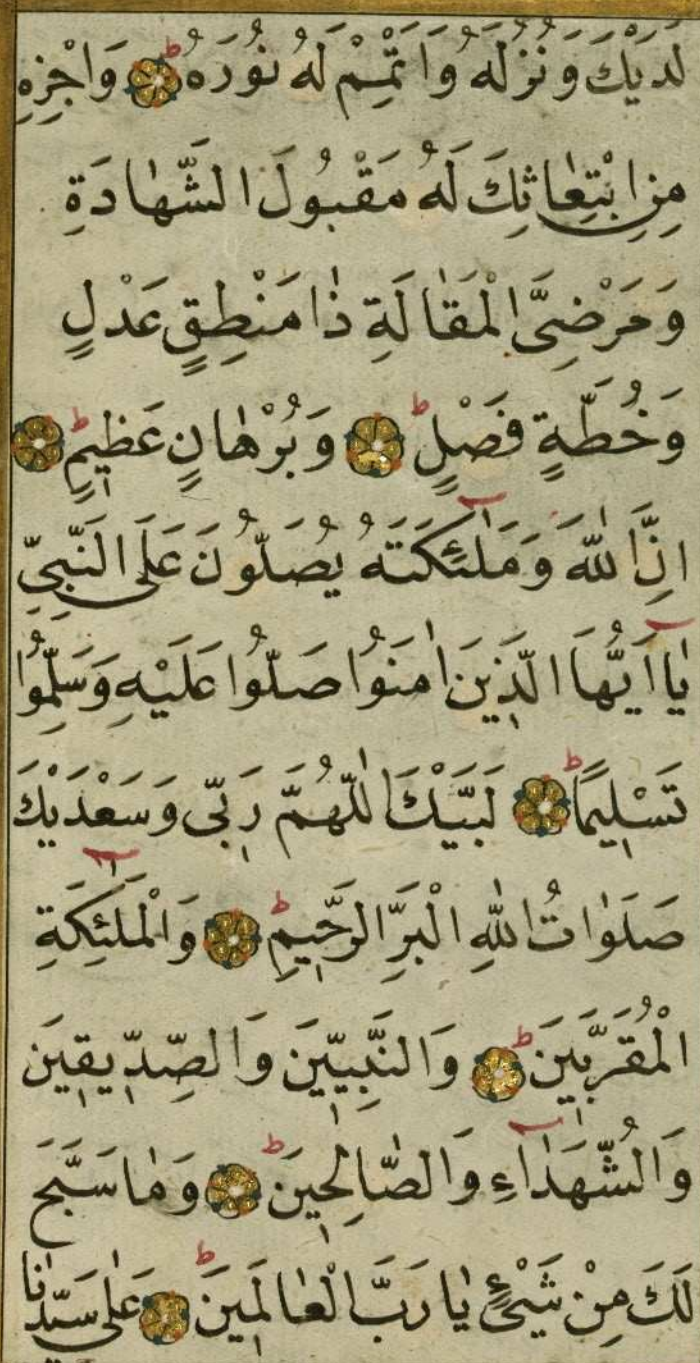 لَدَيْكَ وَنُزُلَهُ وَاَتْمِمْ لَهُ نُورَهُ ط وَاجْزِهِ
مِنِ ابْتِعٰاثِكَ لَهُ مَقْبُولَ الشَّهٰادَةِ
وَمَرْضِىَّ الْمَقٰالَةِ ذٰا مَنْطِقٍ عَدْلٍ
وَخُطَّةٍ فَصْلٍ ط وَبُرْهٰانٍ عَظِيمٍ ط
اِنَّ اللّٰهَ وَمَلٰٓئِكَتَهُ يُصَلُّونَ عَلَى النَّبِىِّ
يٰٓا اَيُّهَا الَّذِينَ اٰمَنُوا صَلُّوا عَلَيْهِ وَسَلِّمُوا
تَسْلِيمًا ط لَبَّيْكَ اللّٰهُمَّ رَبِّى وَسَعْدَيْكَ
صَلَوٰاتُ اللّٰهِ الْبَرِّ الرَّحِيمِ ط وَالْمَلٰٓئِكَةِ
الْمُقَرَّبِينَ ط وَالنَّبِيِّينَ وَالصِّدِّيقِينَ
وَالشُّهَدٰٓاءِ وَالصّٰالِحِينَ ط وَمٰا سَبَّحَ
لَكَ مِنْ شَيْئٍ يٰا رَبَّ الْعٰالَمِينَ ط عَلٰى سَيِّدِنٰا